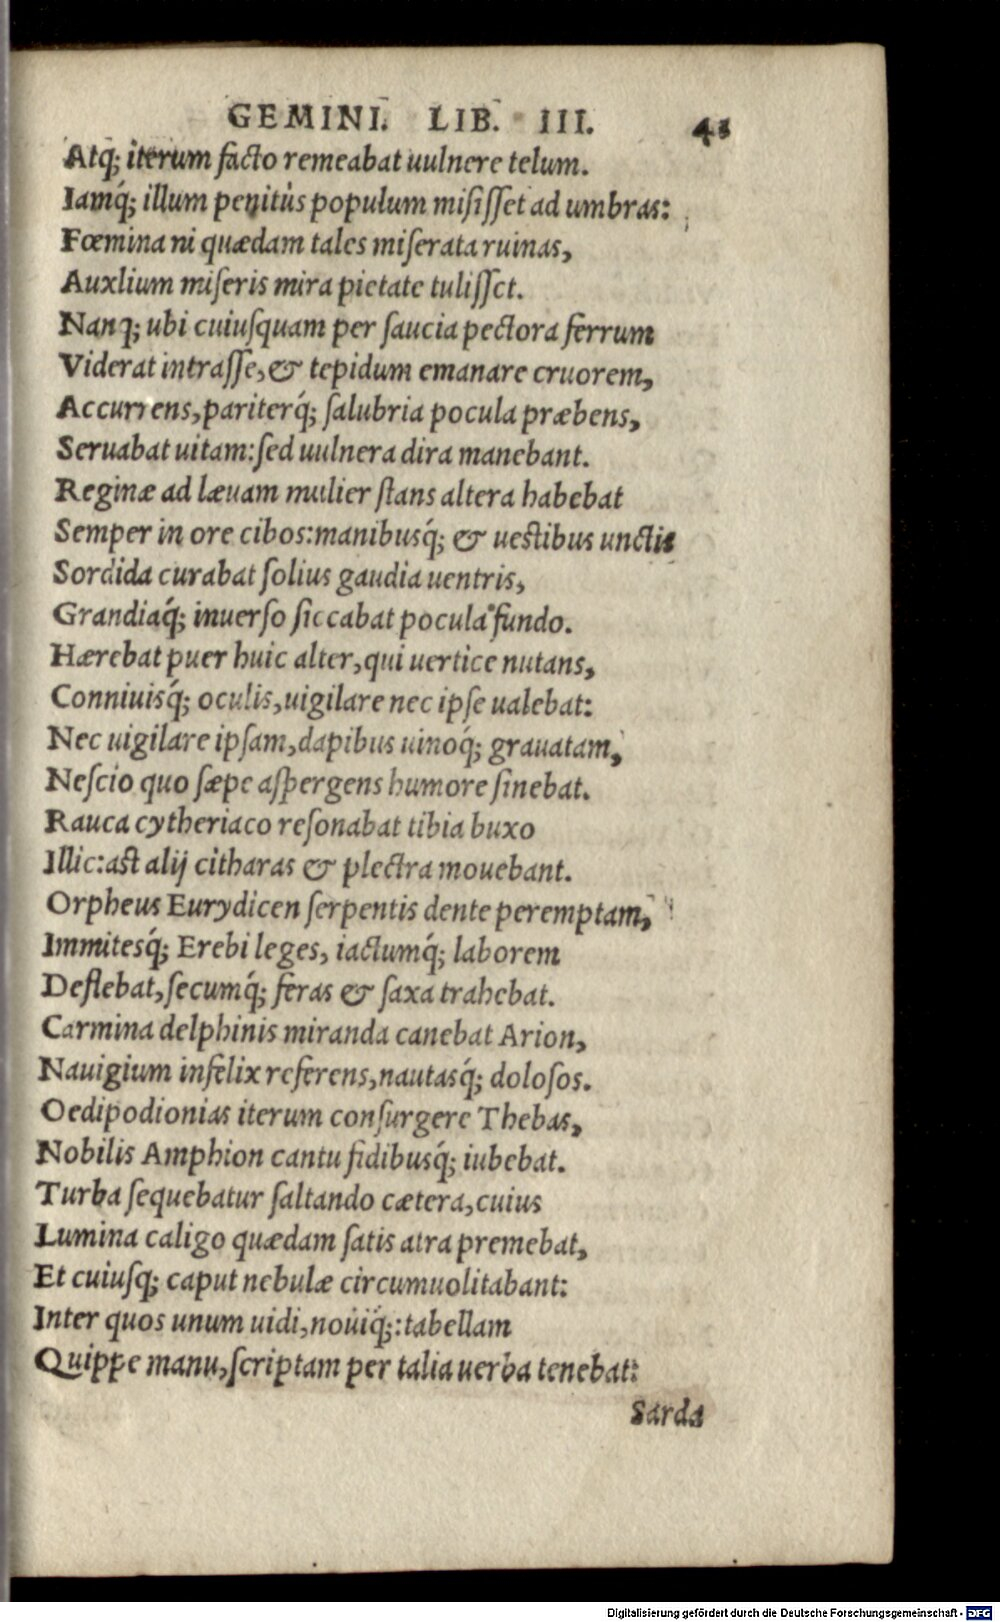 GEMINI. LIB. III. 41
Atq; iterum facto remeabat uulnere telum.
Iamq́; illum penitùs populum misisset ad umbras:
Fœmina ni quædam tales miserata ruinas,
Auxlium miseris mira pietate tulisset.
Nanq; ubi cuiusquam per saucia pectora ferrum
Viderat intrasse, & tepidum emanare cruorem,
Accurrens, pariterq́; salubria pocula præbens,
Seruabat uitam: sed uulnera dira manebant.
Reginæ ad læuam mulier stans altera habebat
Semper in ore cibos: manibusq́; & uestibus unctis
Sordida curabat solius gaudia uentris,
Grandiaq́; inuerso siccabat pocula fundo.
Hærebat puer huic alter, qui uertice nutans,
Conniuisq́; oculis, uigilare nec ipse ualebat:
Nec uigilare ipsam, dapibus uinoq́; grauatam,
Nescio quo sæpe aspergens humore sinebat.
Rauca cytheriaco resonabat tibia buxo
Illic: ast alij citharas & plectra mouebant.
Orpheus Eurydicen serpentis dente peremptam,
Immitesq́; Erebi leges, iactumq́; laborem
Deflebat, secumq́; feras & saxa trahebat.
Carmina delphinis miranda canebat Arion,
Nauigium infelix referens, nautasq́; dolosos.
Oedipodionias iterum consurgere Thebas,
Nobilis Amphion cantu fidibusq́; iubebat.
Turba sequebatur saltando cætera, cuius
Lumina caligo quædam satis atra premebat,
Et cuiusq; caput nebulæ circumuolitabant:
Inter quos unum uidi, nouiq́;: tabellam
Quippe manu, scriptam per talia uerba tenebat:
Sarda
Digitalisierung gefördert durch die Deutsche Forschungsgemeinschaft - DFG